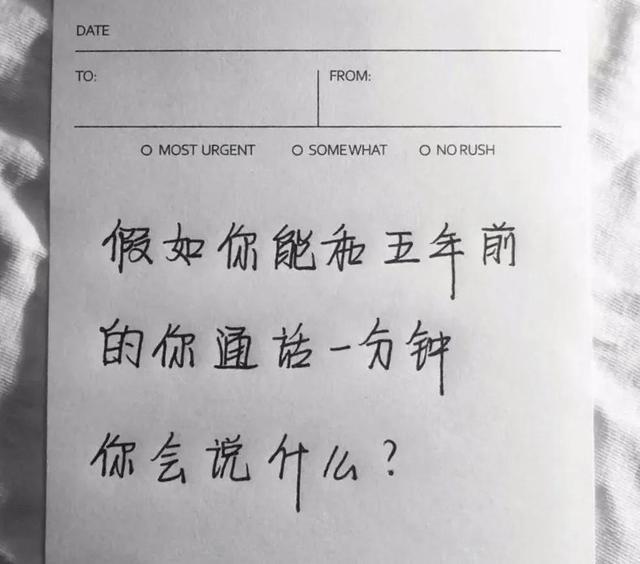 DATE
TO:
FROM:
O MOST URGENT O SOMEWHAT O NO RUSH
假如你能和五年前
的你通话一分钟
你会说什么?